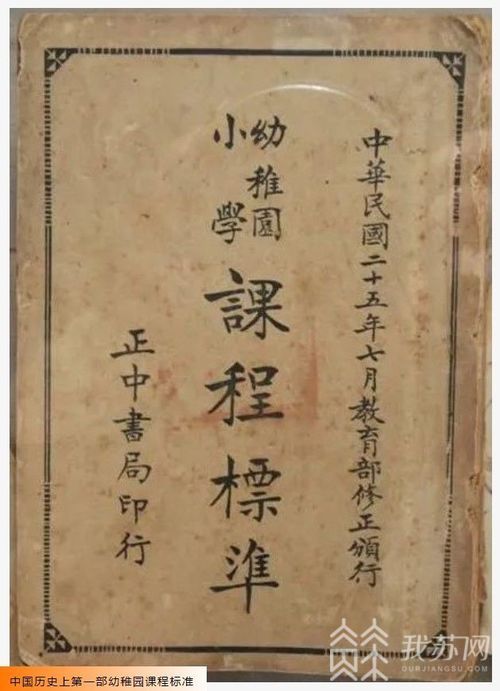 中華民國二十五年七月教育部修正頒行
幼稚園
小學
課程標準
正中書局印行
我苏网
OURJIANGSU.COM
中国历史上第一部幼稚园课程标准